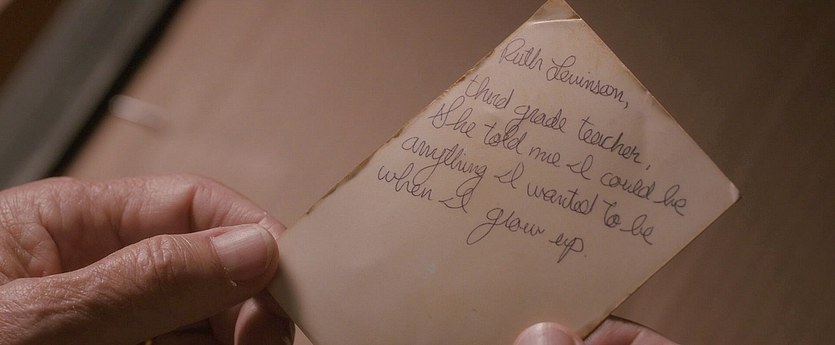 Ruth Levinson,
third grade teacher.
She told me I could be
anything I wanted to be
when I grow up.